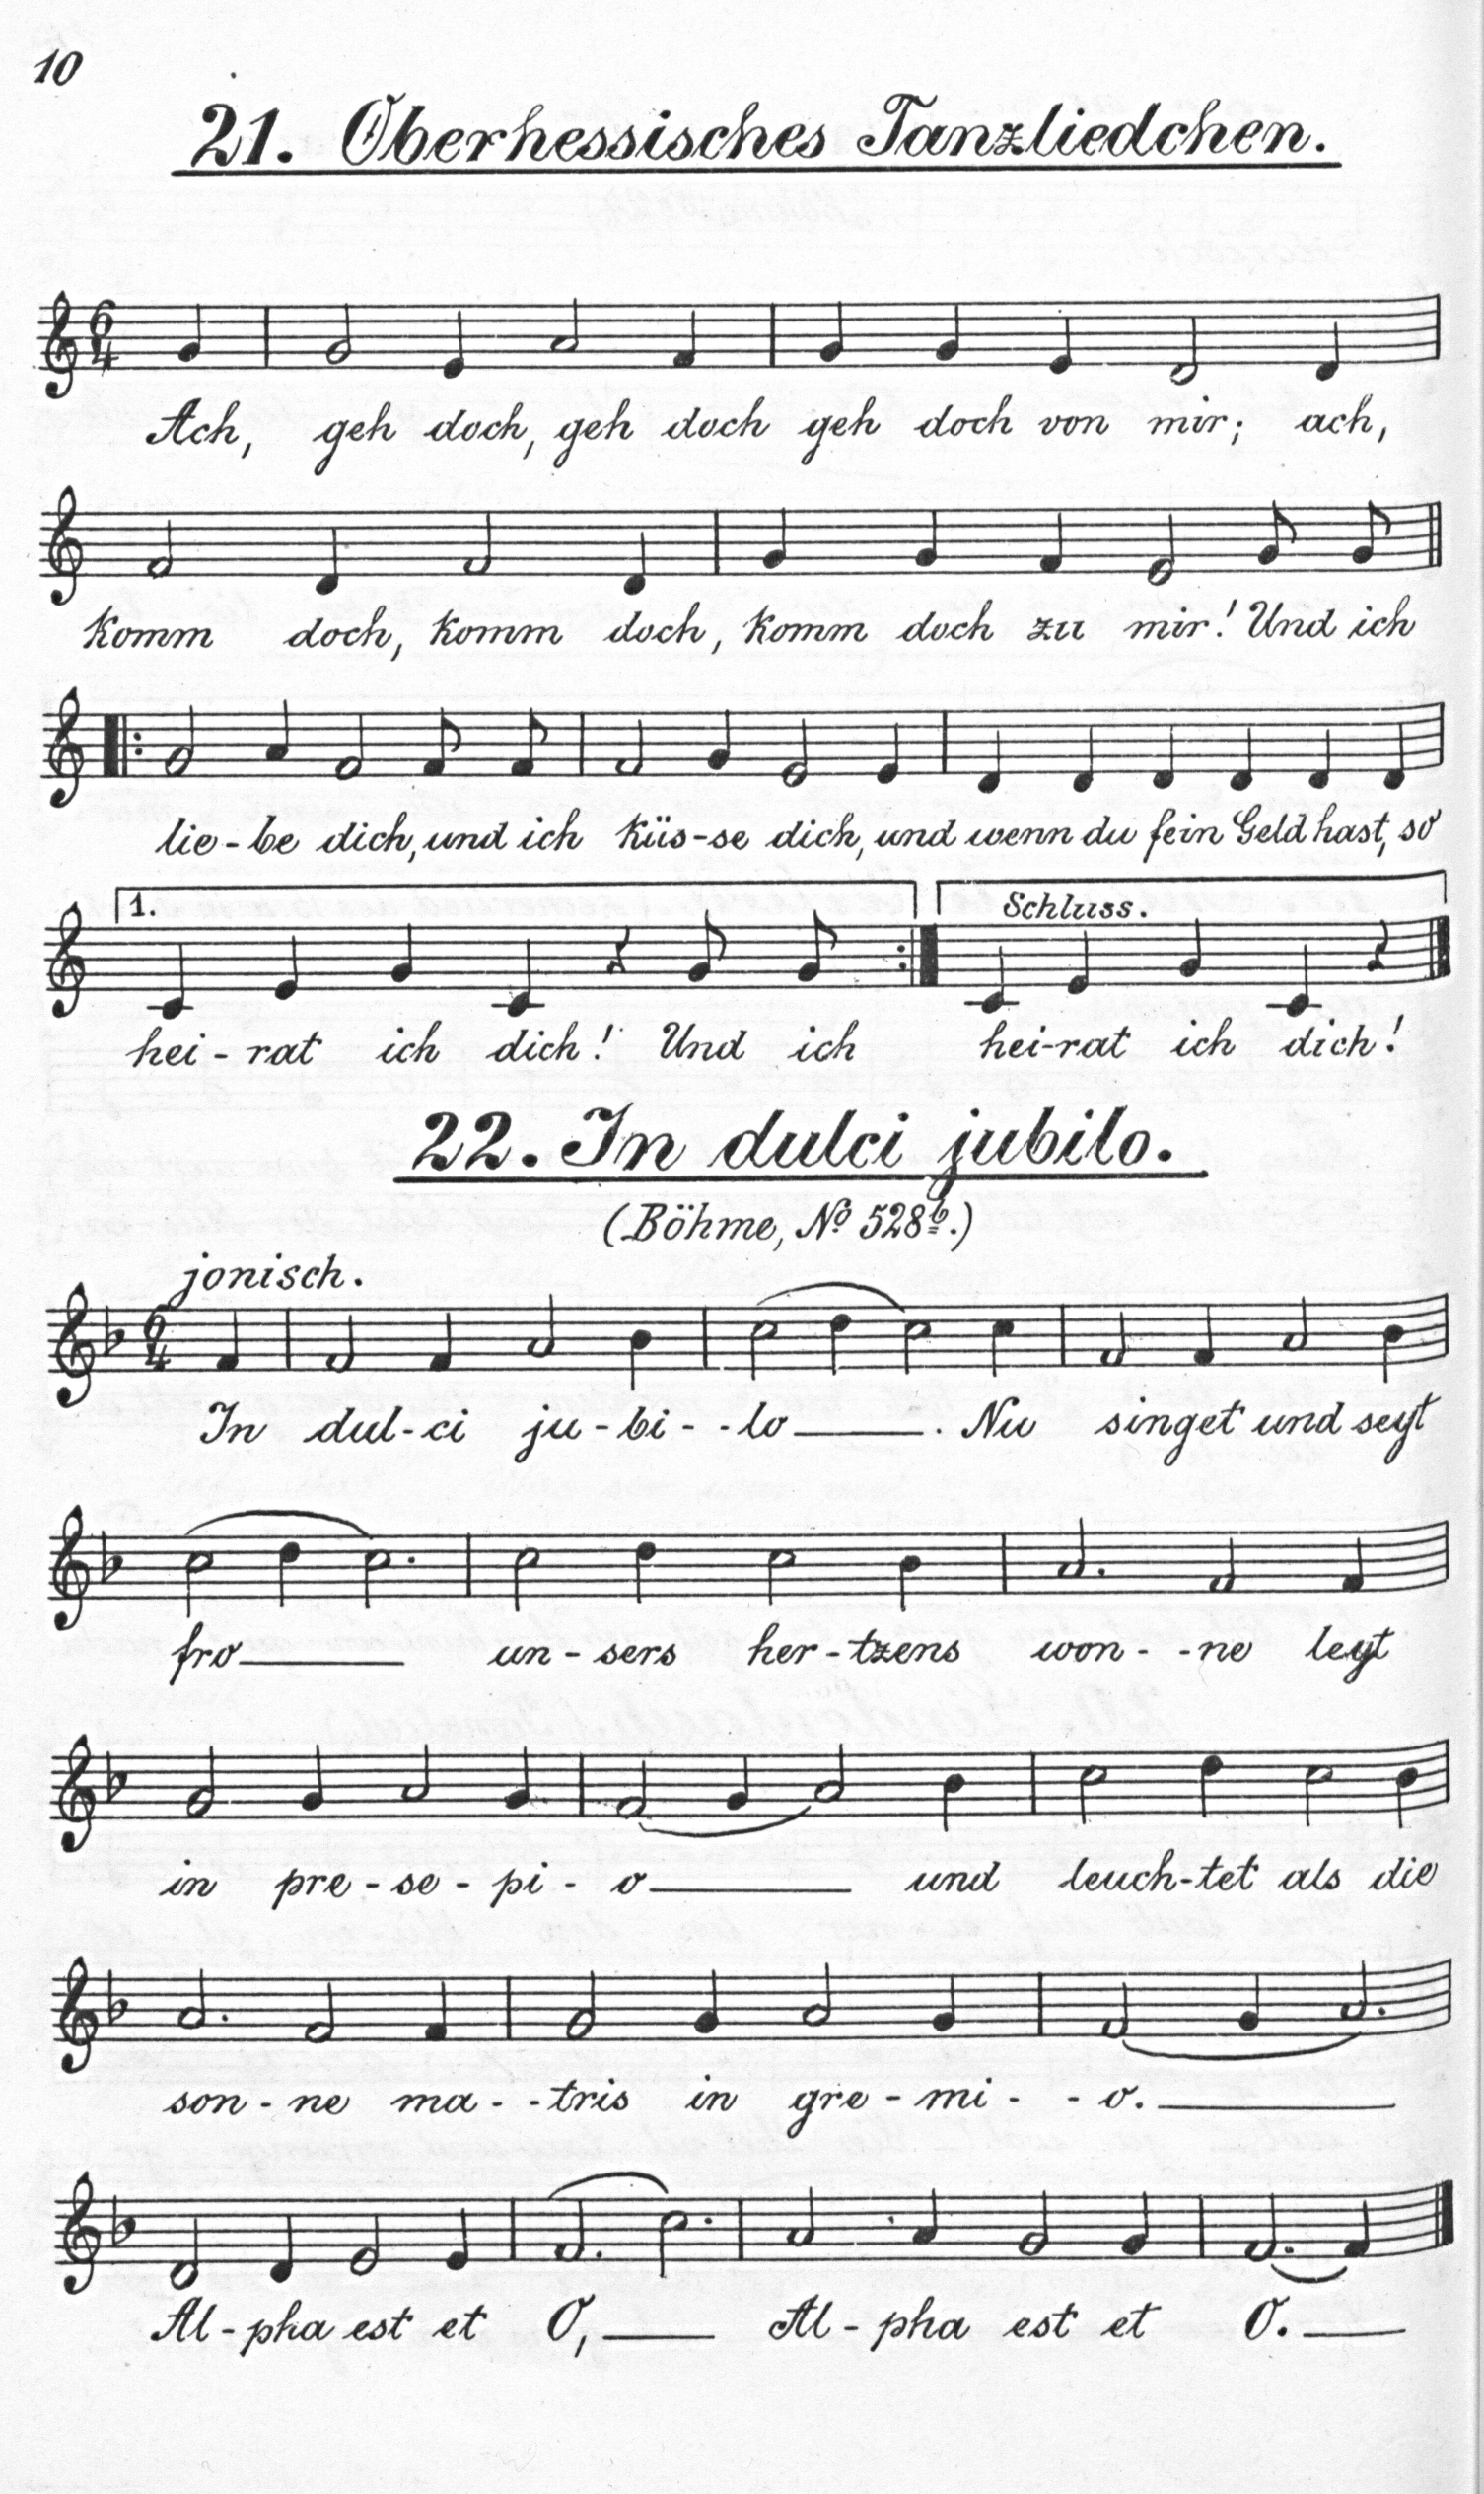 10
21. Oberhessisches Tanzliedchen.
6/4
Ach, geh doch, geh doch geh doch von mir; ach,
komm doch, komm doch, komm doch zu mir! Und ich
lie-be dich, und ich küs-se dich, und wenn du fein Geld hast, so
1. Schluss.
hei-rat ich dich! Und ich hei-rat ich dich!
22. In dulci jubilo.
(Böhme, No 528b.)
jonisch.
6/4
In dul-ci ju-bi--lo. Nu singet und seyt
fro un-sers her-tzens won--ne leyt
in pre-se-pi-o und leuch-tet als die
son-ne ma--tris in gre-mi--o.
Al-pha est et O, Al-pha est et O.